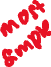 not
simple